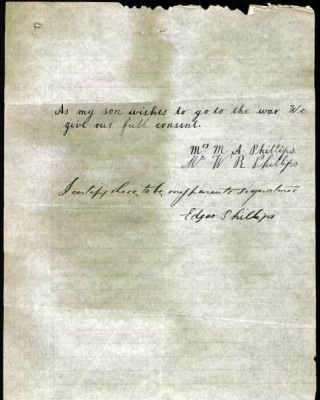 As my son wishes to go to the war We
give our full consent.
Mrs M. A. Phillips
Mr W R Phillips
I certify these to be my parents signatures
Edgar Phillips